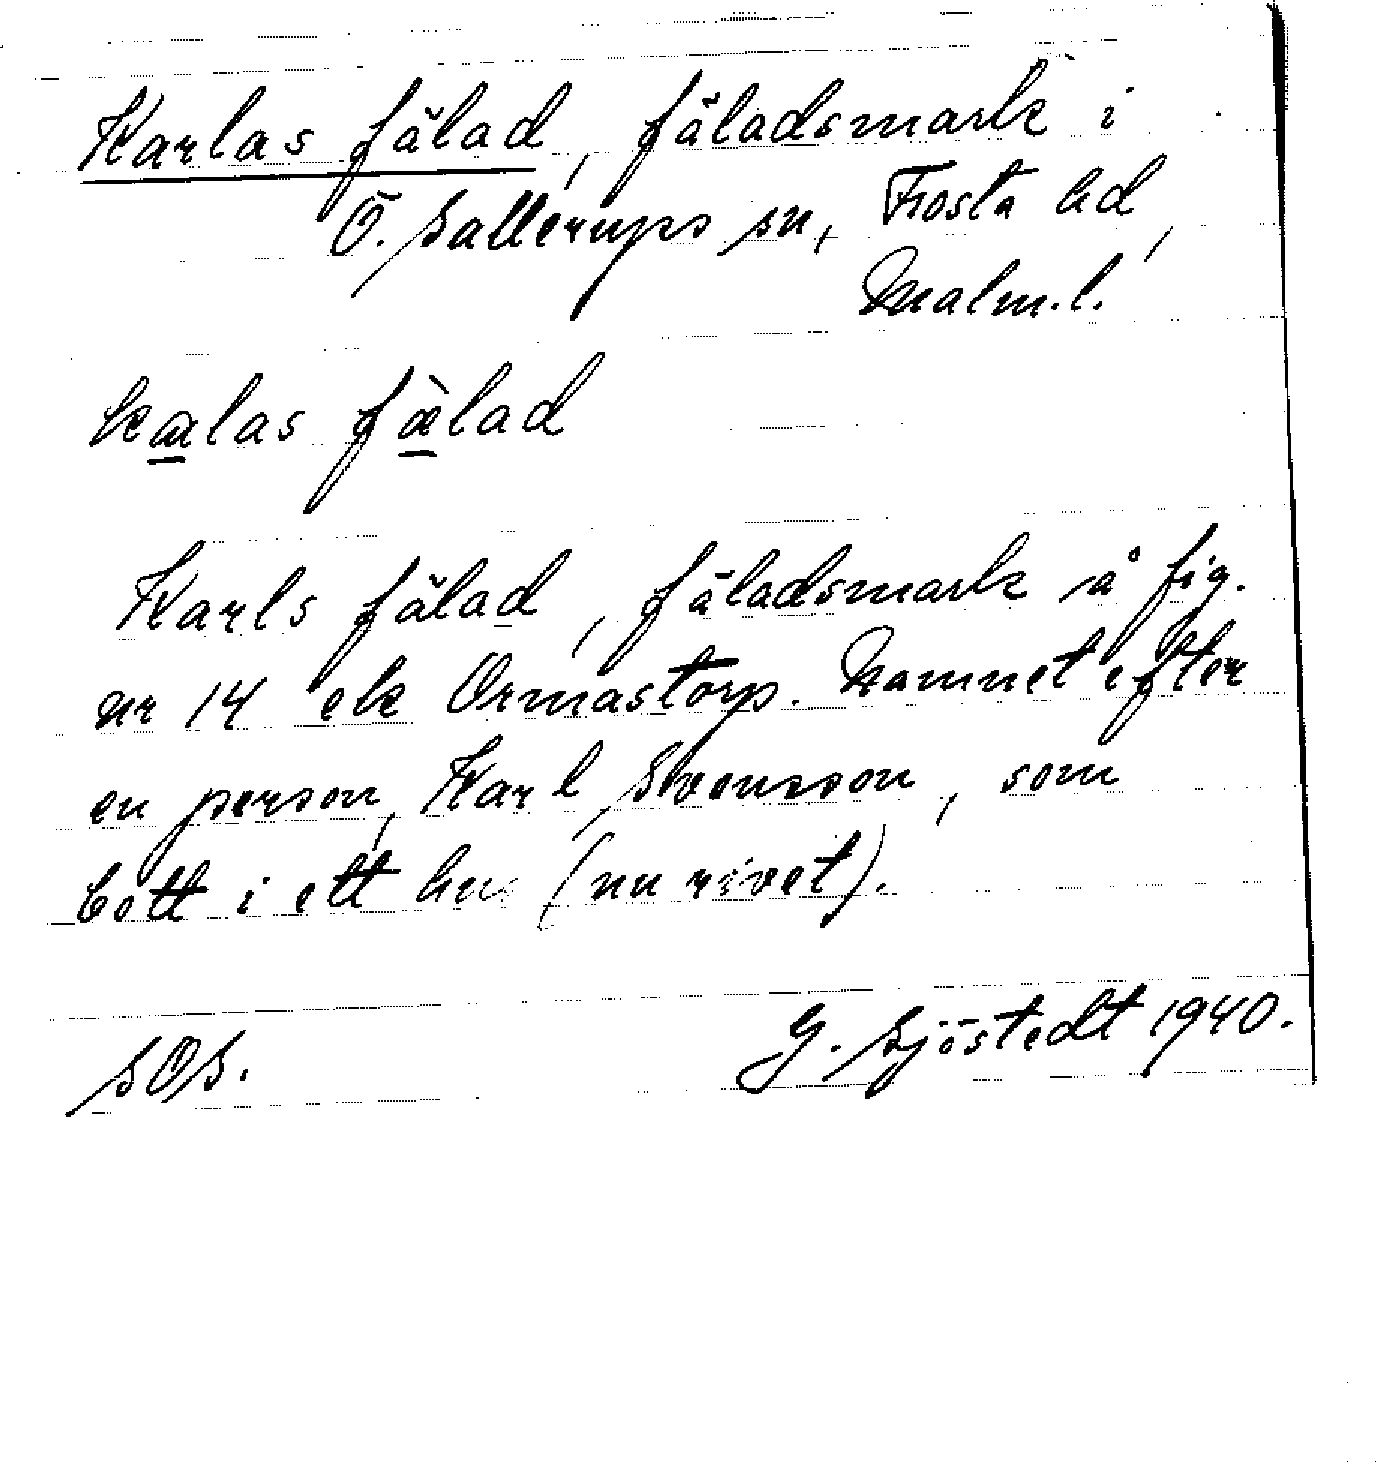 Karlas fälad, fäladsmark i
Ö. Sallerups sn, Frosta hd,
Malm.l.
kalas fälad
Karls fälad, fäladsmark å fig.
nr 14 ek Ormastorp. Namnet efter
en person, Karl Svensson, som
bott i ett hus (nu rivet).
SOS.
G. Sjöstedt 1940.